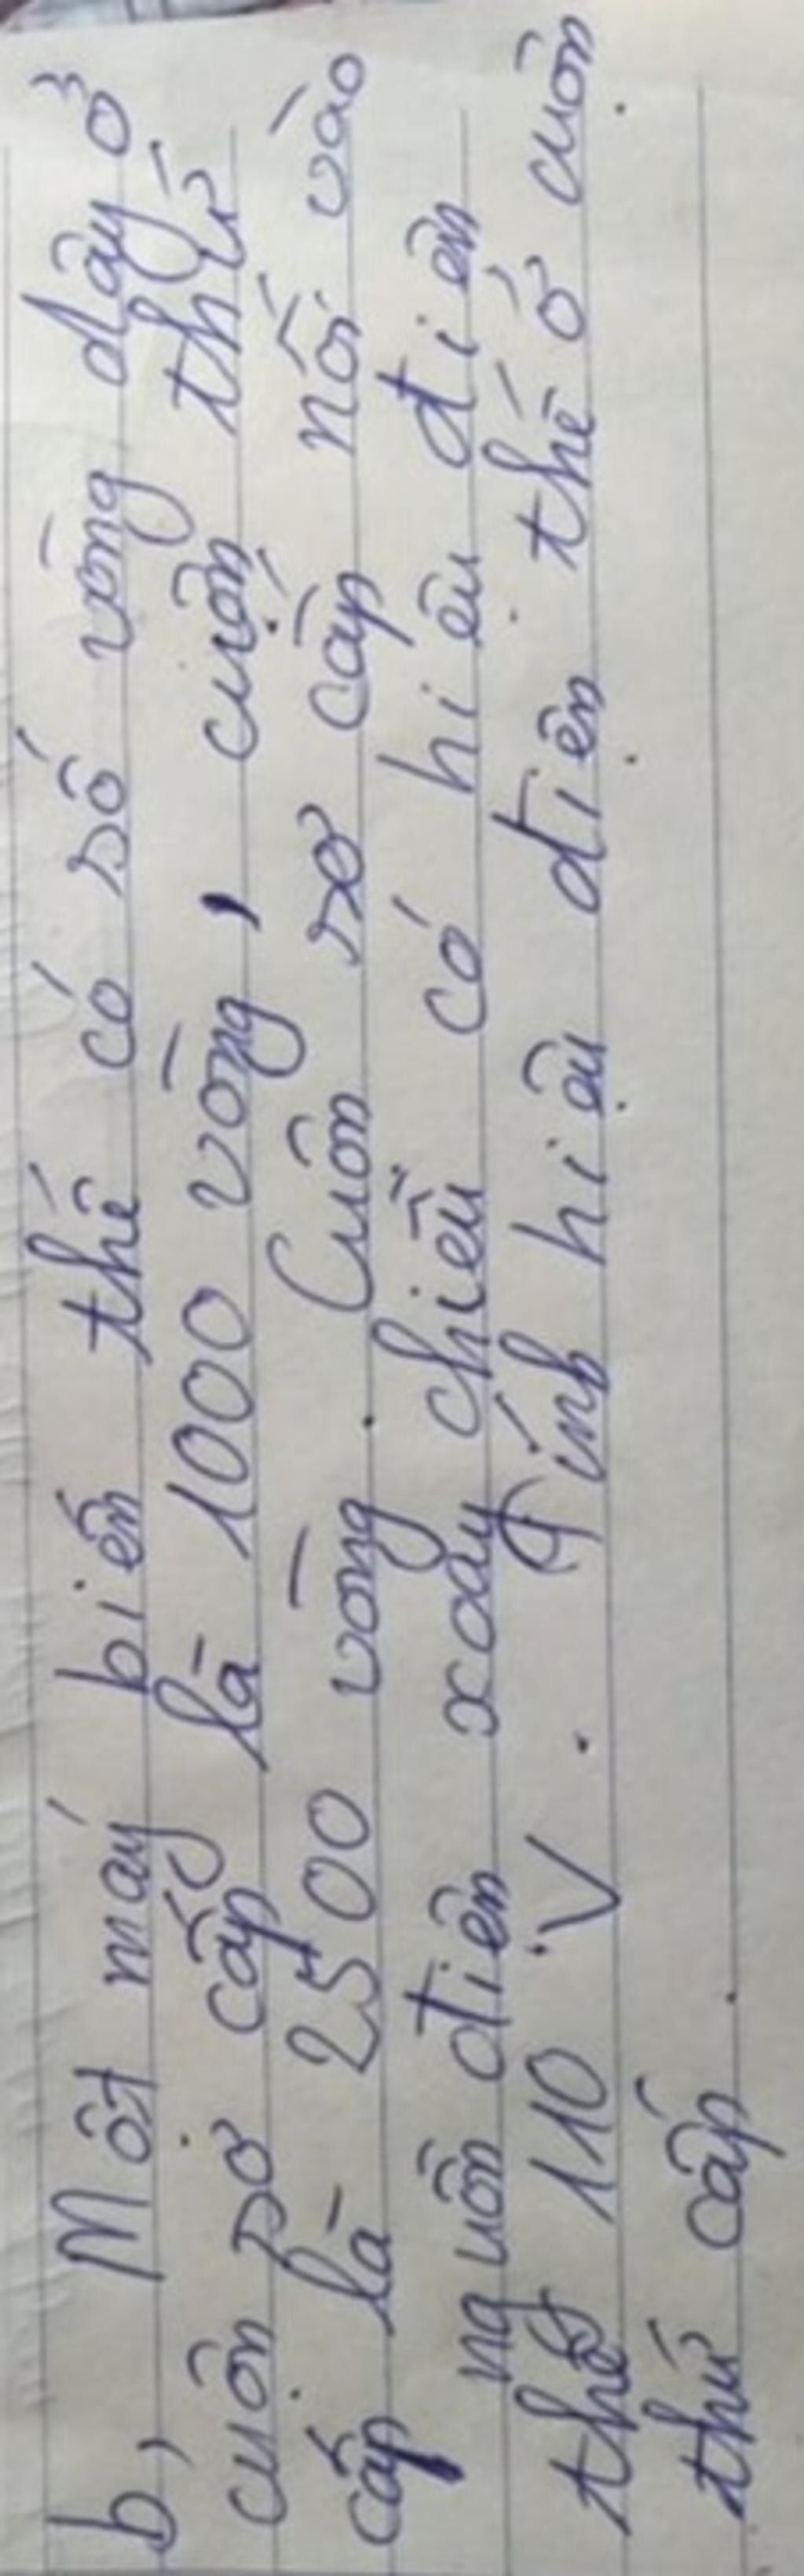 b, Một máy biến thế có số vòng dây ở
cuộn sơ cấp là 1000 vòng, cuộn thứ
cấp là 2500 vòng. Cuộn sơ cấp nối vào
nguồn điện xoay chiều có hiệu điện
thế 110 V. Tính hiệu điện thế ở cuộn
thứ cấp.